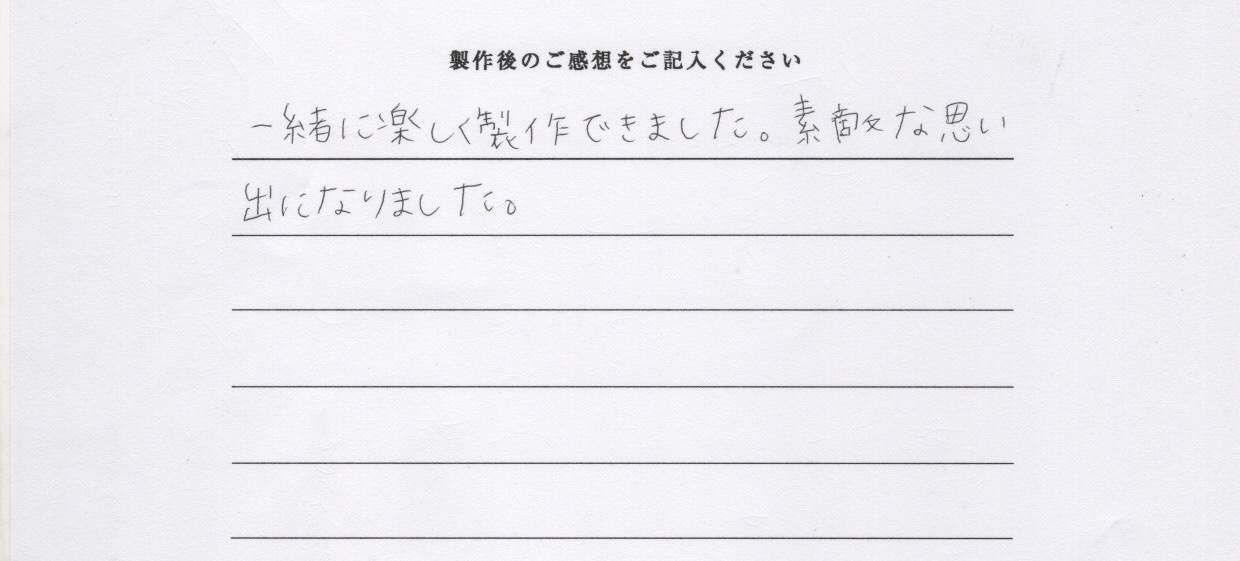 製作後のご感想をご記入ください
一緒に楽しく製作できました。素敵な思い
出になりました。